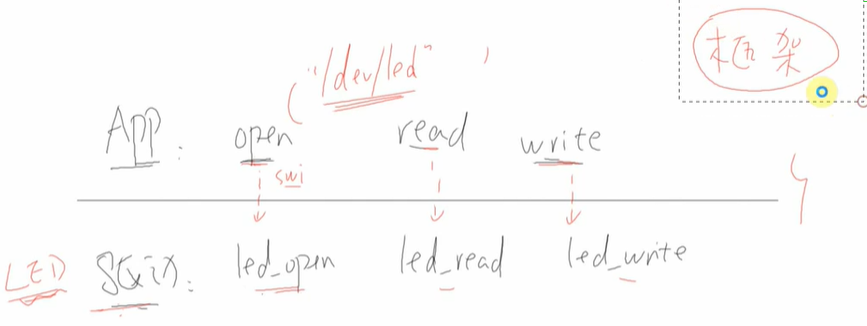 框架
("/dev/led" ,
App: open read write
swi
LED led_open led_read led_write